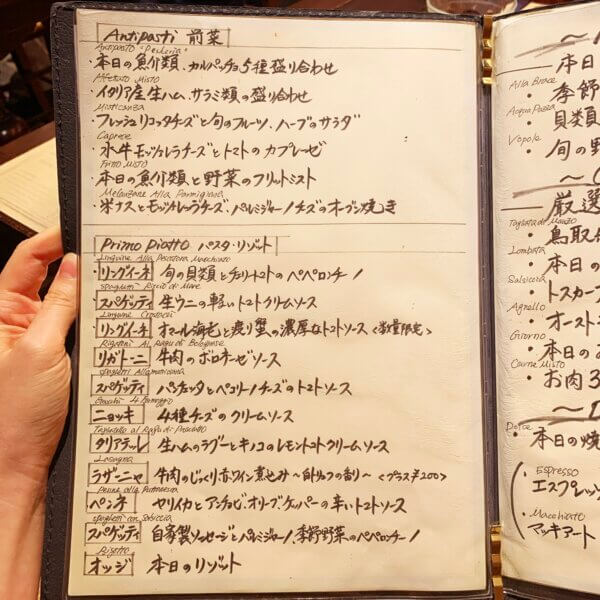 Antipasti 前菜
Antipasto "Pescheria"
・本日の魚介類、カルパッチョ5種盛り合わせ
Affettato Misto
・イタリア産生ハム、サラミ類の盛り合わせ
Misticanza
・フレッシュリコッタチーズと旬のフルーツ、ハーブのサラダ
Caprese
・水牛モッツァレラチーズとトマトのカプレーゼ
Fritto Misto
・本日の魚介類と野菜のフリットミスト
Melanzane Alla Parmigiana
・米ナスとモッツァレラチーズ、パルミジャーノチーズのオーブン焼き
Primo piatto パスタ・リゾット
Linguine Alla Pescatora Macchiato
・リングイーネ 旬の貝類とチェリートマトのペペロンチーノ
Spaghetti Riccio di Mare
スパゲッティ 生ウニの軽いトマトクリームソース
Linguine Crostacei
・リングイーネ オマール海老と渡り蟹の濃厚なトマトソース <数量限定>
Rigatoni Al Ragu di Bolognese
リガトーニ 牛肉のボロネーゼソース
Spaghetti Allamatriciana
スパゲッティ パンチェッタとペコリーノチーズのトマトソース
Gnocchi 4 Formaggio
ニョッキ 4種チーズのクリームソース
Tagliatelle al Ragu di Prosciutto
タリアテッレ 生ハムのラグーとキノコのレモントマトクリームソース
Lasagna
ラザーニャ 牛肉のじっくり赤ワイン煮込み ～白トリュフの香り～ <プラス¥200>
Penne alla Puttanesca
ペンネ ヤリイカとアンチョビ、オリーブ、ケッパーの辛いトマトソース
Spaghetti con Salsiccia
スパゲッティ 自家製ソーセージとパルミジャーノ、季節野菜のペペロンチーノ
Risotto
オッジ 本日のリゾット
本日
Alla Brace
・季節
Acqua Pazza
貝類
Vapole
・旬の
厳選
Tagliata di Manzo
・鳥取
Lombata
・本日の
Salsiccia
・トスカー
Agnello
・オースト
Giorno
・本日の
Carne Misto
・お肉3
Dolce
・本日の焼
・Espresso
エスプレッソ
・Macchiato
マッキアート